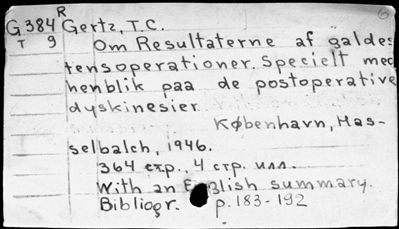 R
G 384 Gertz, T.C.
T 9 Om Resultaterne af galdes
tensoperationer. Specielt med
henblik paa de postoperative
dyskinesier
København, Has-
selbalch, 1946.
364 стр., 4 стр. илл.
With an English summary.
Bibliogr. p. 183-192